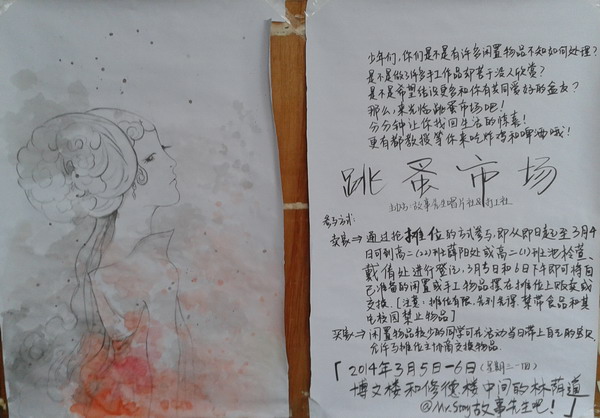 少年们,你们是不是有许多闲置物品不知如何处理?
是不是做了许多手工作品却苦于没人欣赏?
是不是希望结识更多和你有共同爱好的盆友?
那么,来光临跳蚤市场吧!
分分钟让你找回生活的惊喜!
更有都教授等你来吃炸鸡和啤酒哦!
跳蚤市场
故事先生唱片社&手工社
参与方式:
卖家⇒通过抢摊位的方式参与,即从即日起至3月4
日可到高二(2)班薛阳处或高二(1)班池检萱、
戴倩处进行登记,3月5日和6日下午即可将自
己准备的闲置或手工物品摆在摊位上贩卖或
交换。[注意:摊位有限,先到先得,禁带食品和其
它校园禁止物品]
买家⇒闲置物品较少的同学可在活动当日带上自己的易贝
允许与摊位主协商交换物品
「2014年3月5日-6日(星期三-四)
博文楼和修德楼中间的林荫道
@Mr.Story故事先生吧!